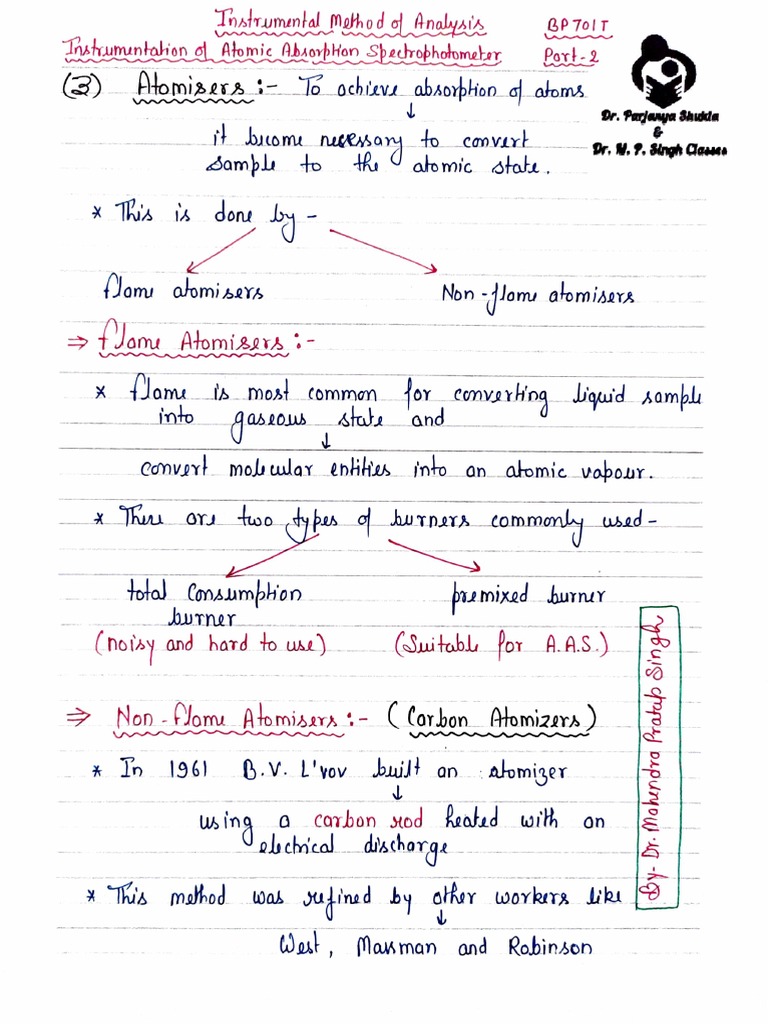 Instrumental Method of Analysis BP701T
Instrumentation of Atomic Absorption Spectrophotometer Part-2
Dr. Parjanya Shukla
&
Dr. M. P. Singh Classes
(3) Atomisers :- To achieve absorption of atoms
↓
it become necessary to convert
sample to the atomic state.
* This is done by -
flame atomisers Non-flame atomisers
⇒ flame Atomisers :-
* flame is most common for converting liquid sample
into gaseous state and
↓
convert molecular entities into an atomic vapour.
* There are two types of burners commonly used-
total consumption premixed burner
burner
(noisy and hard to use) (Suitable for A.A.S.)
⇒ Non-flame Atomisers :- (Carbon Atomizers)
* In 1961 B.V. L'vov built an atomizer
↓
using a carbon rod heated with an
electrical discharge
* This method was refined by other workers like
↓
West, Massman and Robinson
By- Dr. Mahendra Pratap Singh